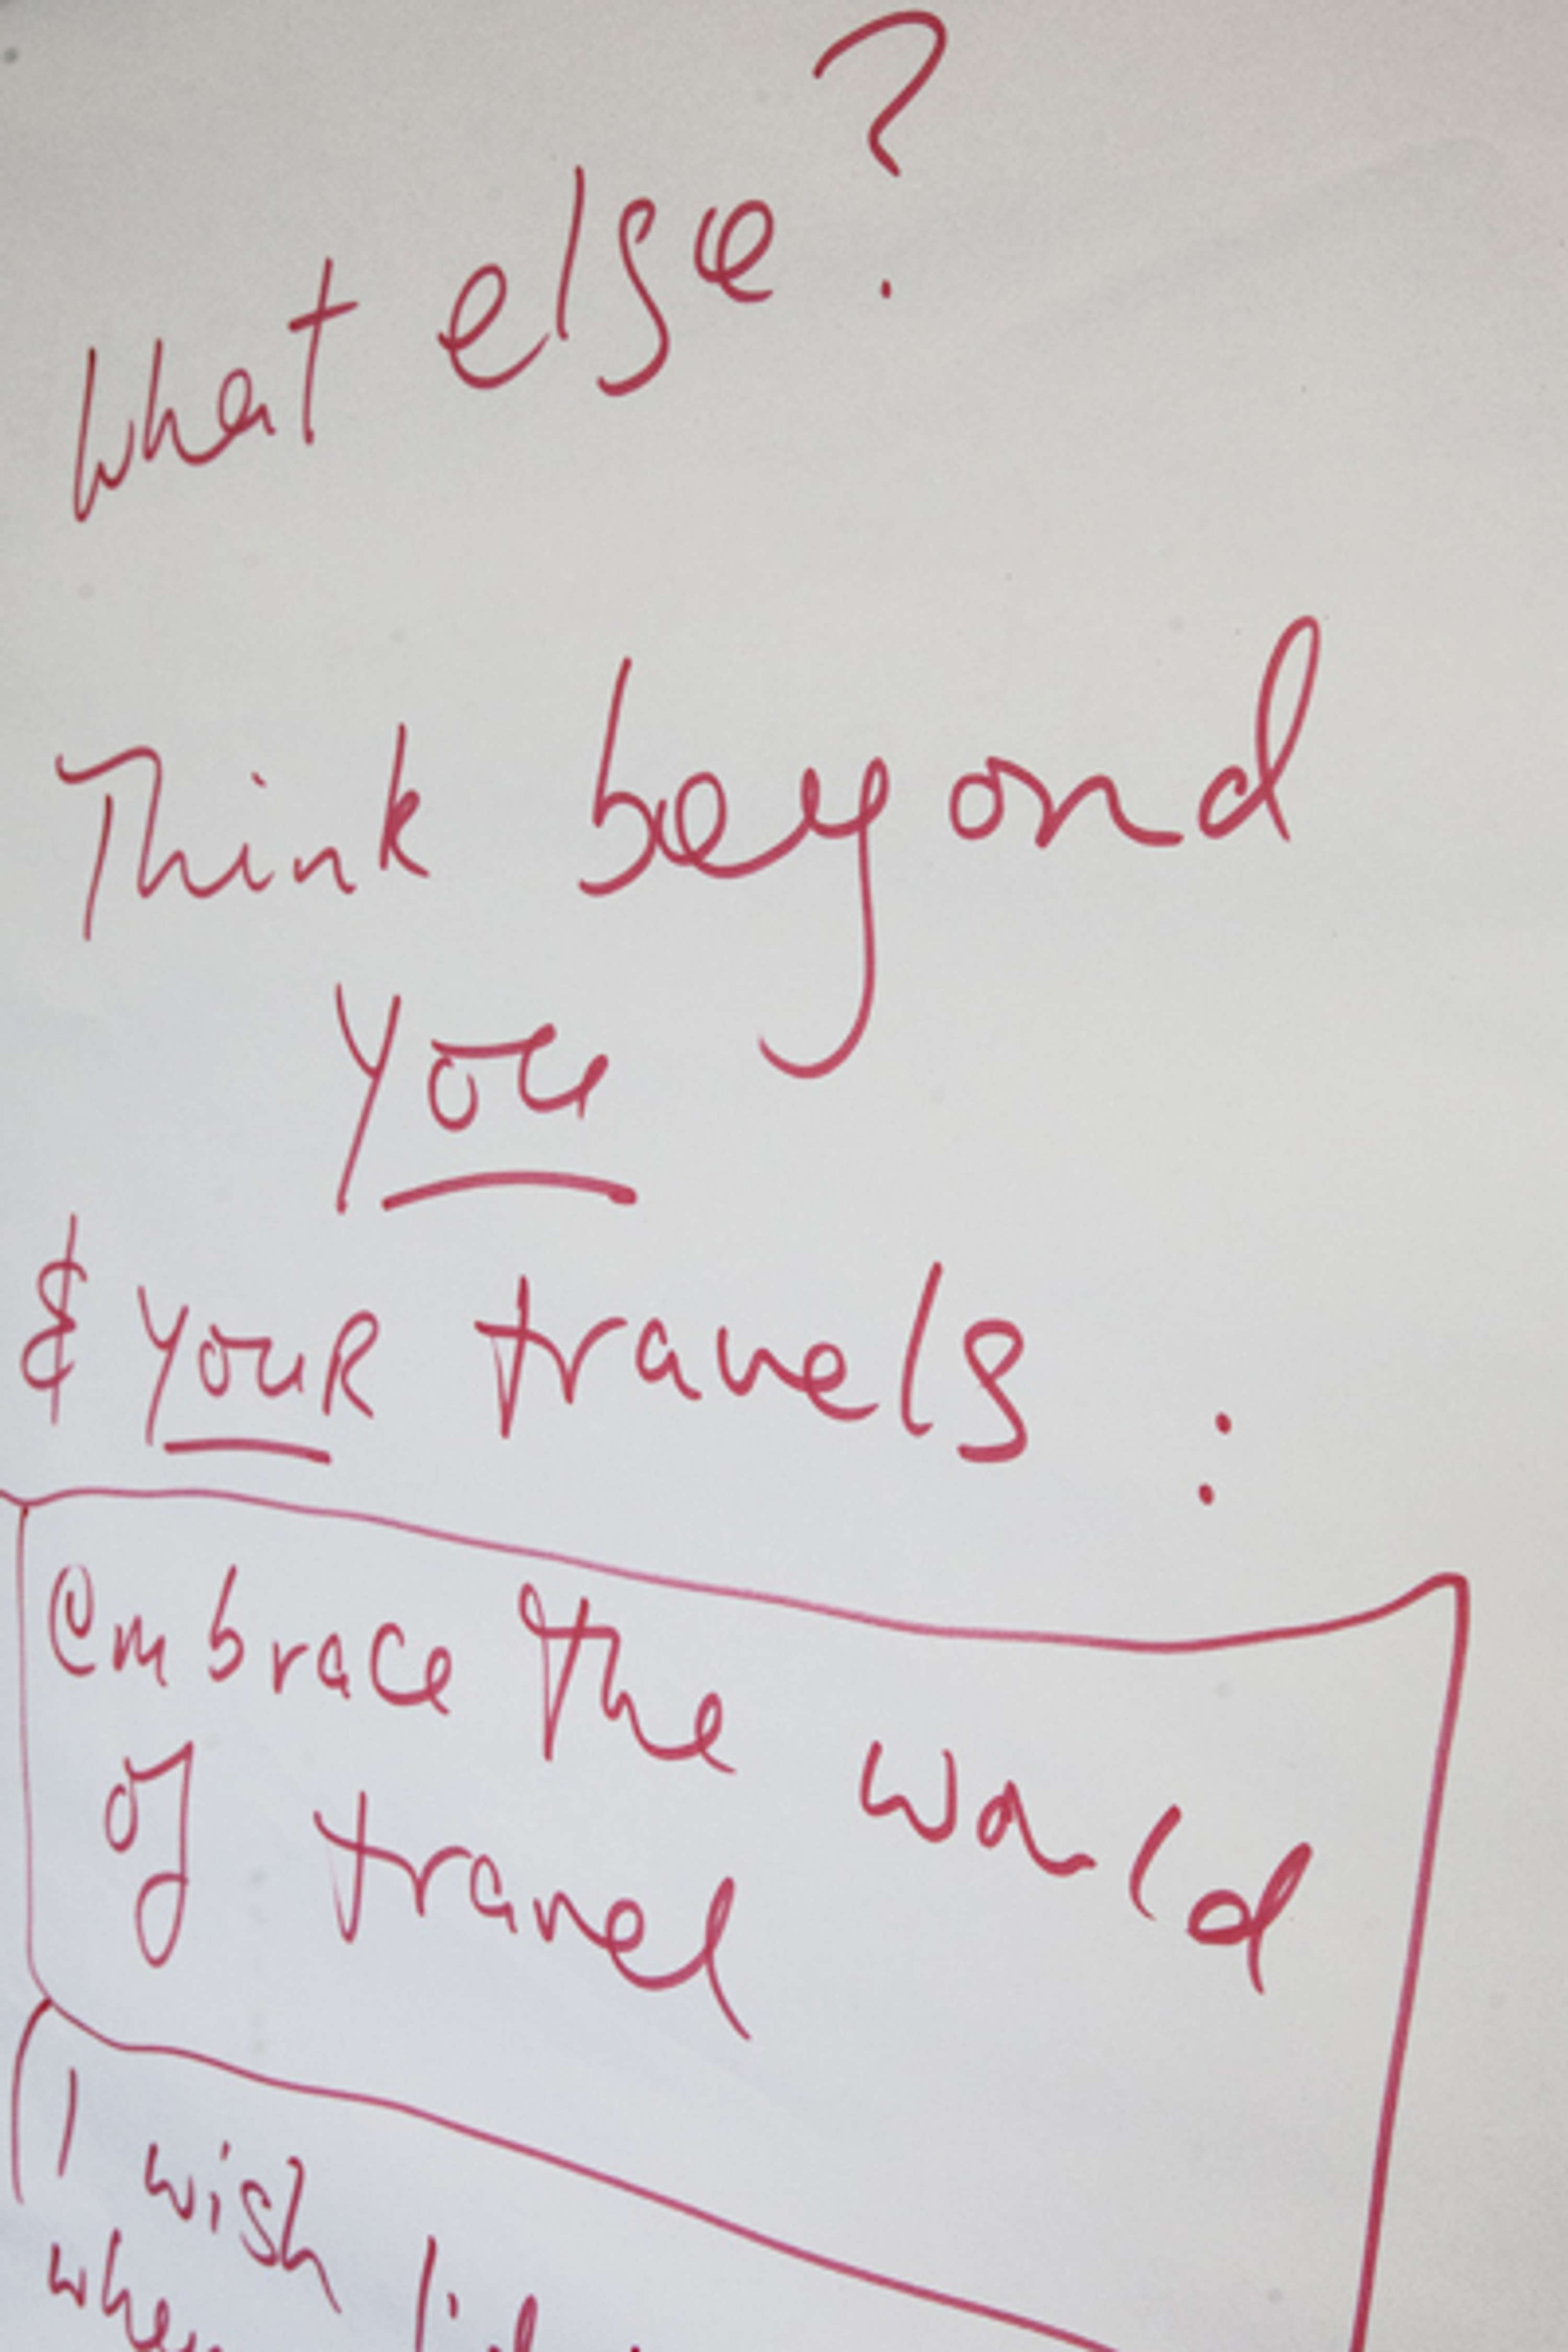 What else?
Think beyond
you
& youR travels :
embrace the world
of travel
I wish